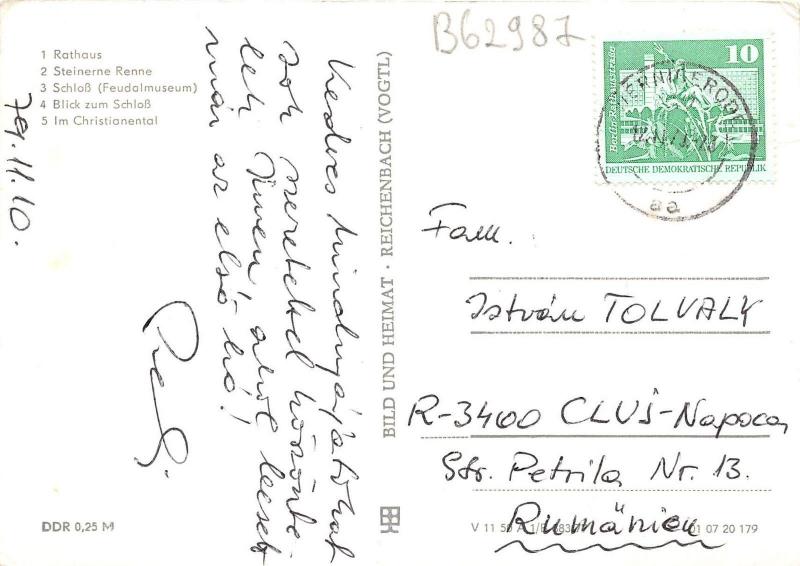 B62987
1 Rathaus
2 Steinerne Renne
3 Schloß (Feudalmuseum)
4 Blick zum Schloß
5 Im Christianental
79.11.10.
Kedves mindnyájatokat
sok szeretettel köszönte-
lek innen, ahol leesett
már az első hó!
BILD UND HEIMAT · REICHENBACH (VOGTL)
10
Berlin, Rathausstraße
DEUTSCHE DEMOKRATISCHE REPUBLIK
WERNIGERODE
aa
Fam.
István TOLVALY
R-3400 CLUJ-Napoca,
Str. Petrila Nr. 13.
Rumänien
DDR 0,25 M
V 11 50 A 1/B
01 07 20 179